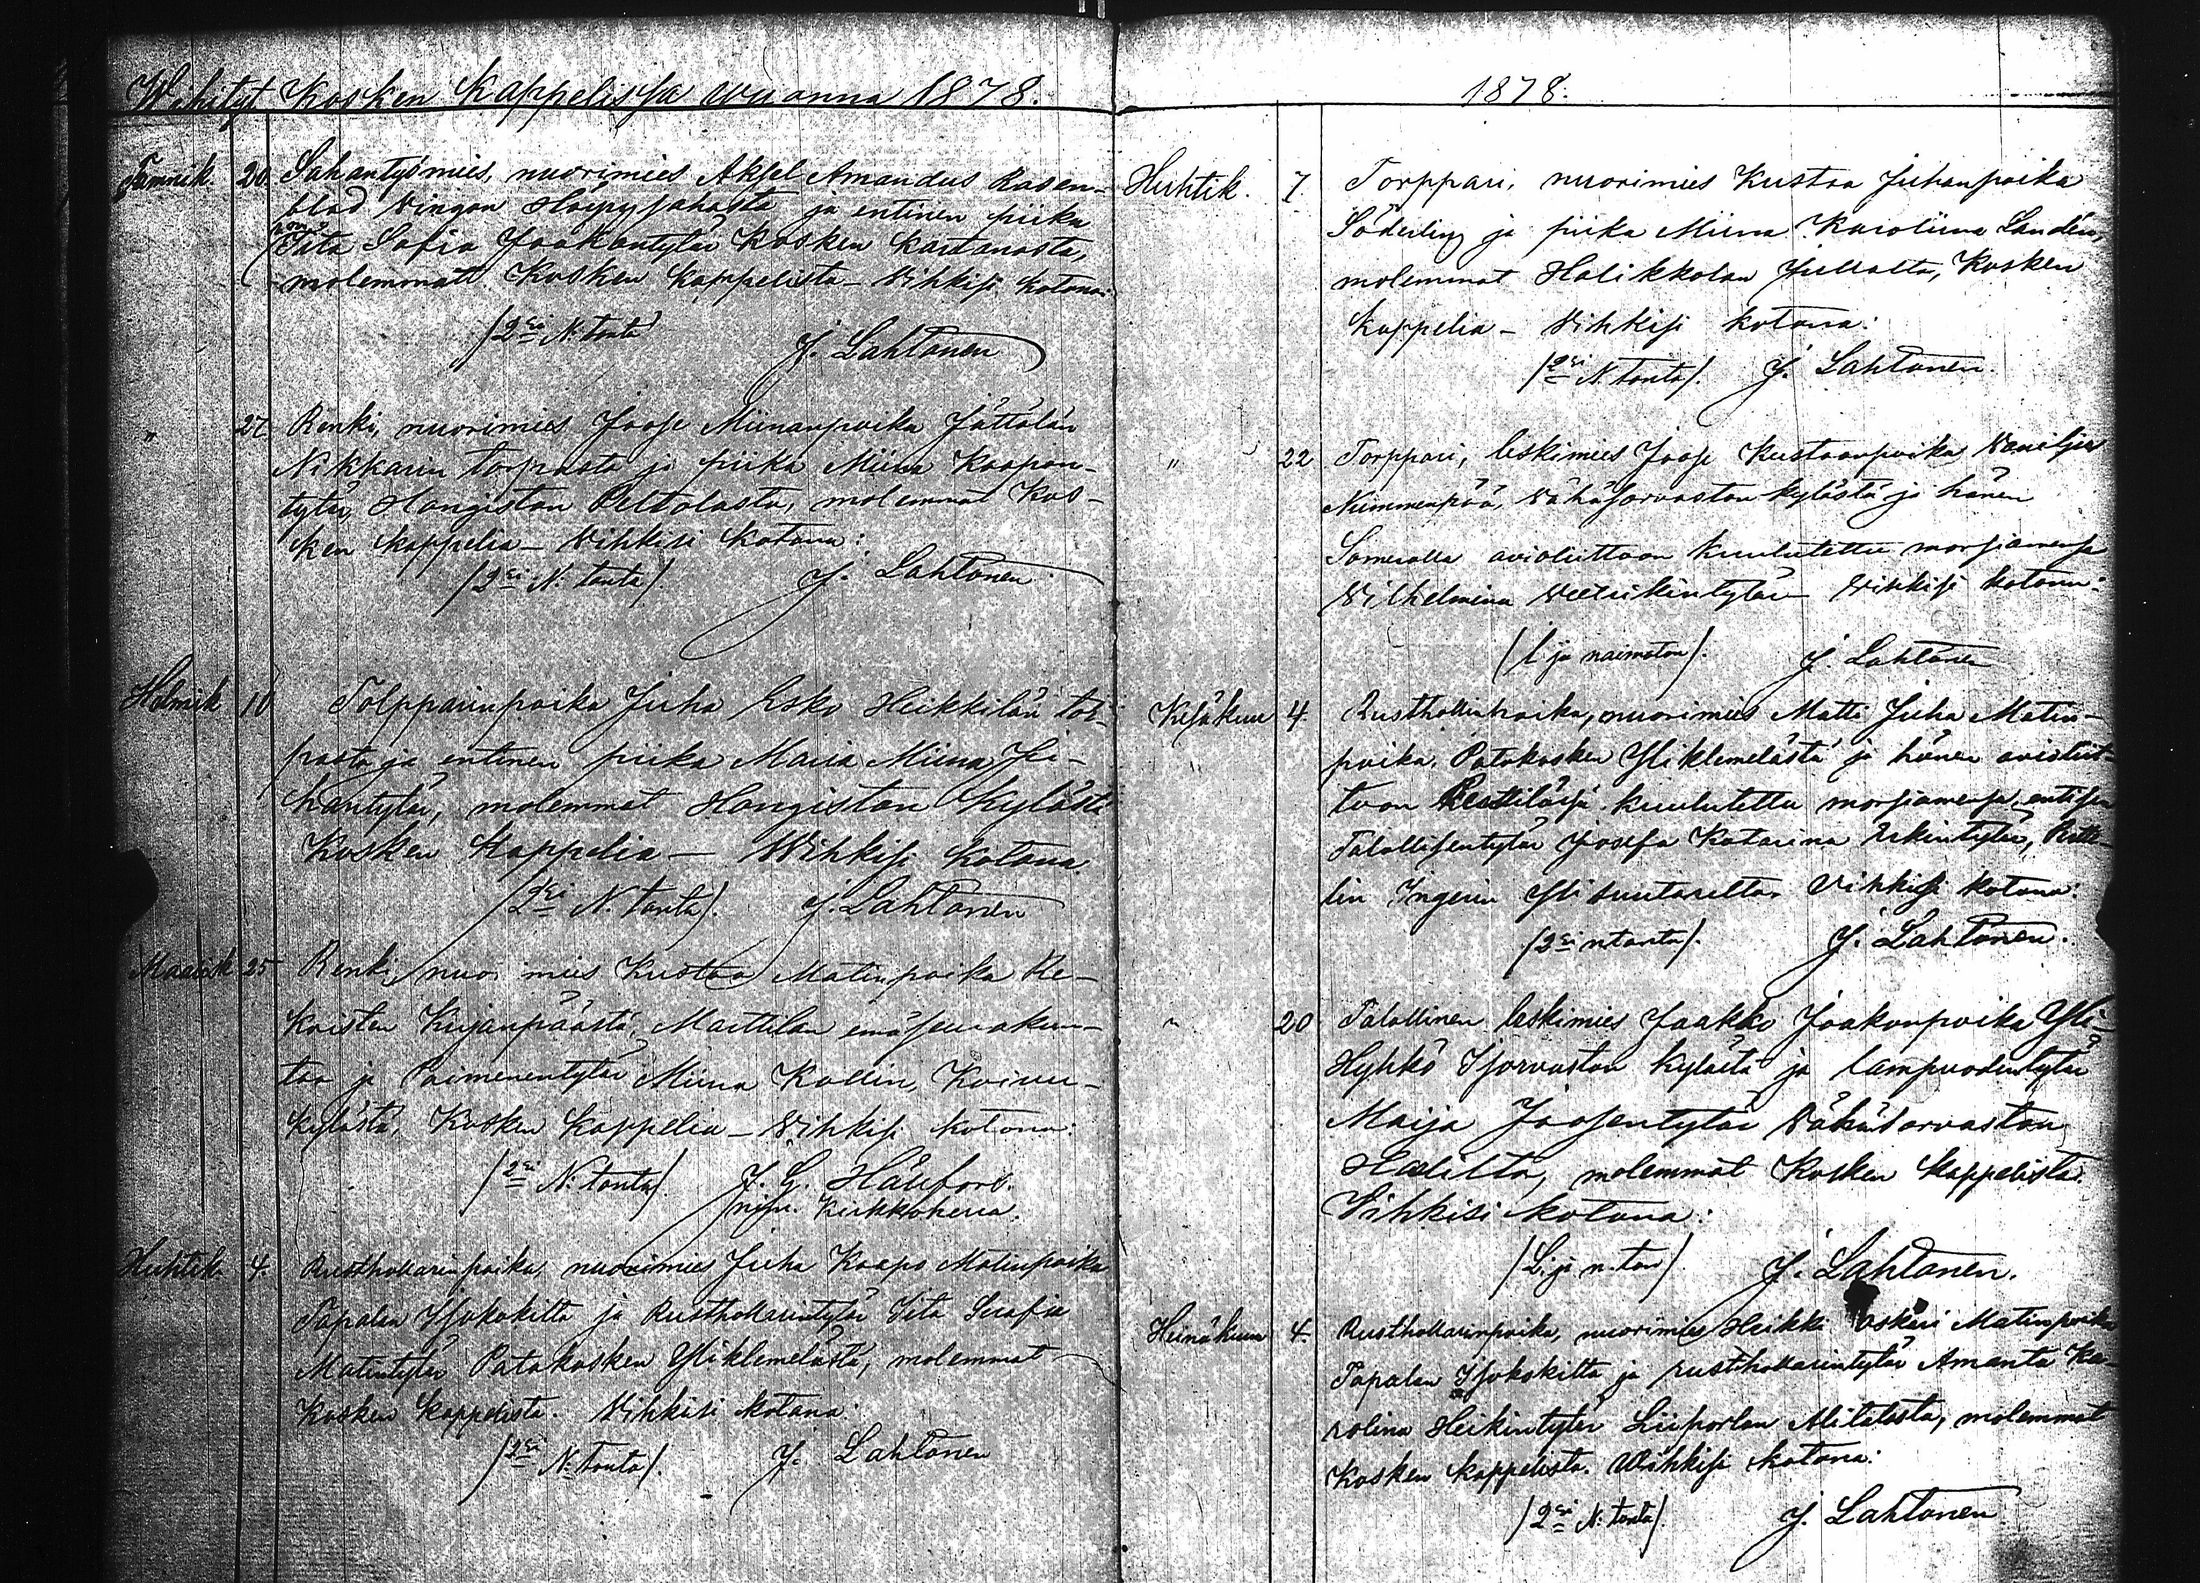 Wihityt Kosken Kappelissa vuonna 1878.
Tammik. 20. Sahantyömies, nuorimies Aksel Amandus Rosen-
blad Vingon Höspysahasta ja entinen piika
Iita Sofia Jaakontytär Kosken Kartanosta,
molemmat Kosken Kappelista – Vihkisi kotona:
/2si N:tonta/ J. Lahtonen
" 27. Renki, nuorimies Joose Miinanpoika Jättälän
Nikkarin torpasta ja piika Miina Kaapon-
tytär, Hongiston Peltolasta, molemmat Kos-
ken kappelia – Vihkisi kotona:
/2si N: tonta/. J. Lahtonen
Helmik 10 Tolpparinpoika Juha Esko Heikkilän tor-
pasta ja entinen piika Maria Miina Ju-
hantytär, molemmat Hongiston Kylästä
Kosken Kappelia – Wihkisi kotona.
/2si N. tonta/. J. Lahtonen
Maalisk 25 Renki, nuorimies Kustaa Matinpoika Re-
koisten Kujanpäästä, Marttilan emäseurakun-
taa ja Paimenentytär Miina Kollin, Koivu-
kylästä, Kosken kappelia – Vihkisi kotona:
/2si N: tonta/. J. G. Hålfors.
Kirkkoherra.
Huhtik. 4. Rusthollarinpoika, nuorimies Juha Kaapo Matinpoika
Tapalan Isokokilta ja Rusthollarintytär Iita Serafia
Matintytär Patakosken Yliklemelästä, molemmat
Kosken kappelista. Vihkisi kotona:
/2si N: tonta/. J. Lahtonen
1878.
Huhtik. 7. Torppari, nuorimies Kustaa Juhanpoika
Söderling ja piika Miina Karoliina Landén,
molemmat Halikkolan Jullalta, Kosken
kappelia – Vihkisi kotona:
/2si N. tonta/. J. Lahtonen.
" 22 Torppari, leskimies Joose Kustaanpoika
Nummenpää, Vähäsorvaston kylästä ja hänen
Somerolla avioliittoon kuulutettu morsiamensa
Vilhelmina Veetrikintytär – Vihkisi kotona:
/l. ja naimaton/. J. Lahtonen
Kesäkuu 4. Rusthollinpoika, nuorimies Matti Juha Matin-
poika, Patakosken Yliklemelästä ja hänen avioliit-
toon kuulutettu morsiamensa, entisen
Talollisentytär Josefa Katarina Erkintytär,
lin Ingerin Ylisuutarilta. Vihkisi kotona:
/2si ntonta/. J. Lahtonen.
" 20 Talollinen leskimies Jaakko Jaakonpoika Yli-
Hyhkö Isorvaston kylästä ja lampuodentytär
Maija Joosentytär Vähäsorvaston
Haililta, molemmat Kosken kappelista.
Vihkisi kotona:
/L. ja n.ton/. J. Lahtonen.
Heinäkuu 4. Rusthollarinpoika, nuorimies Heikki Oskari Matinpoika
Tapalan Isokokilta ja rusthollarintytär Amanta Ka-
rolina Heikintytär Liiporlan Alitalosta, molemmat
Kosken kappelista. Wihkisi kotona:
/2si N: tonta/. J. Lahtonen